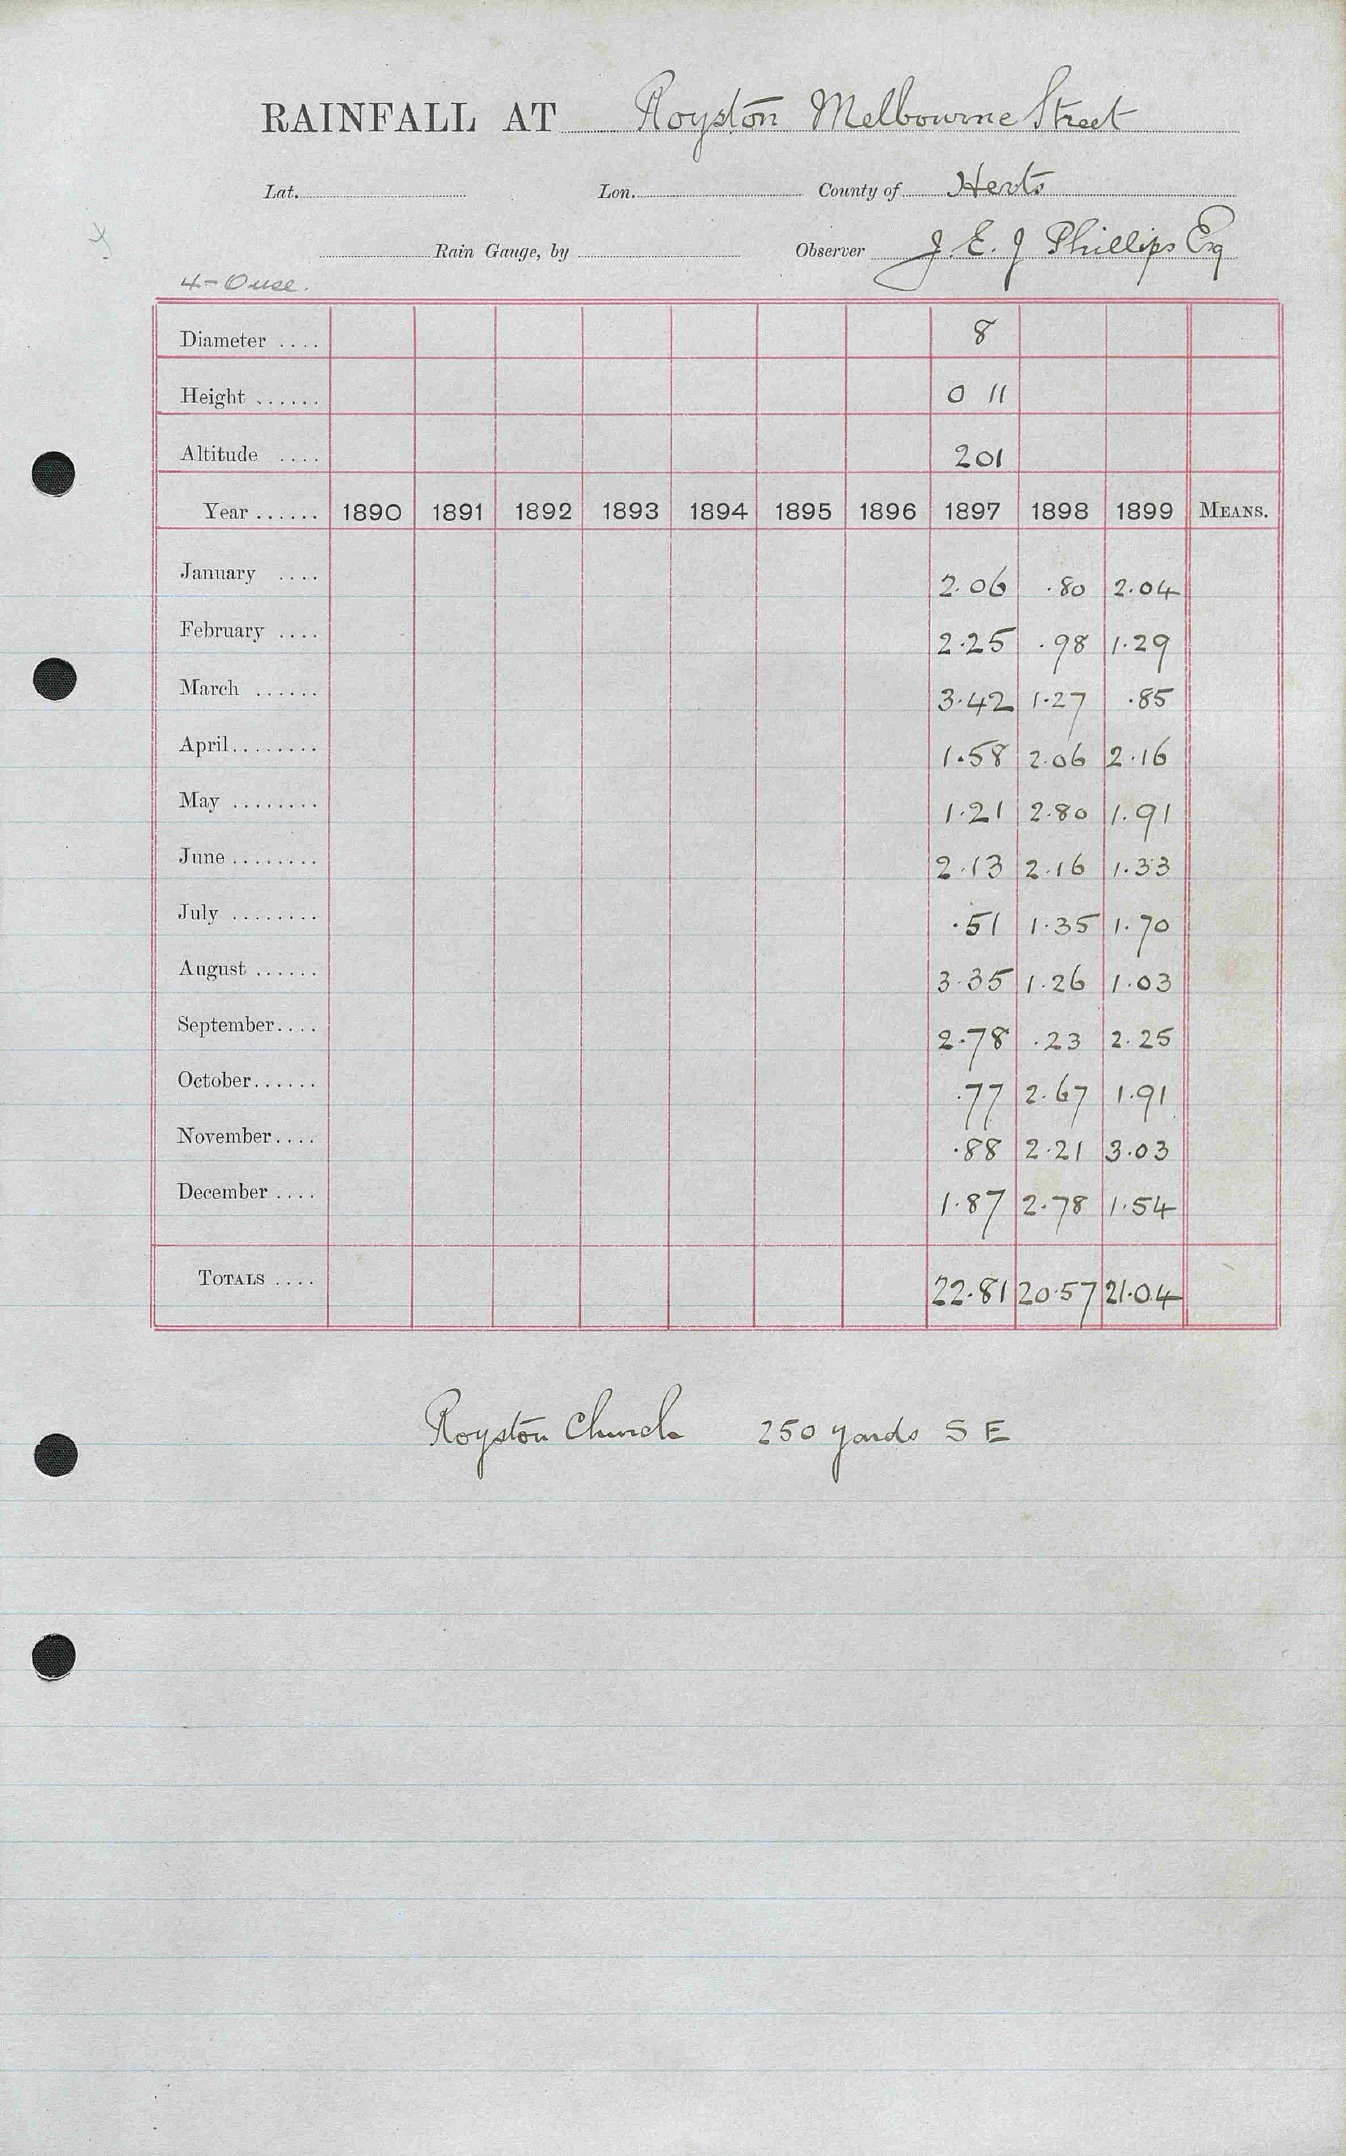 RAINFALL AT Royston Melbourne Street
Lat. Lon. County of Herts
Rain Gauge, by Observer J. E. J Phillips Esq
4-Ouse.
Diameter .... 8
Height ...... 0 11
Altitude .... 201
Year ...... 1890 1891 1892 1893 1894 1895 1896 1897 1898 1899 MEANS.
January .... 2.06 .80 2.04
February .... 2.25 .98 1.29
March ...... 3.42 1.27 .85
April........ 1.58 2.06 2.16
May ........ 1.21 2.80 1.91
June ........ 2.13 2.16 1.33
July ........ .51 1.35 1.70
August ...... 3.35 1.26 1.03
September.... 2.78 .23 2.25
October...... .77 2.67 1.91
November.... .88 2.21 3.03
December .... 1.87 2.78 1.54
TOTALS .... 22.81 20.57 21.04
Royston Church 250 yards S E